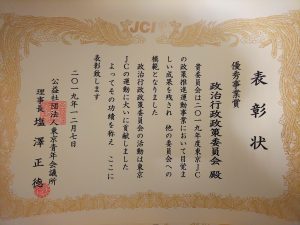 JCI
表彰状
優秀事業賞
政治行政政策委員会 殿
貴委員会は二〇一九年度東京JC
の政策推進運動事業において目覚ま
しい成果を残され 他の委員会への
模範となりました
政治行政政策委員会の活動は東京
JCの運動に大いに貢献しました
よってその功績を称え ここに
表彰致します
二〇一九年一二月七日
公益社団法人 東京青年会議所
理事長 塩澤正徳